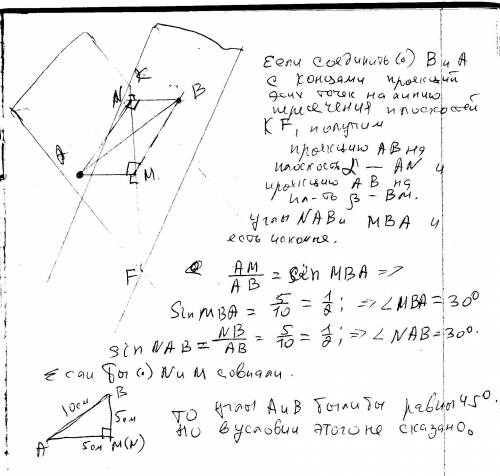 K
N
B
A
M
F
Если соединить (·) В и А
с концами проекций
этих точек на линию
пересечения плоскостей
KF, получим
проекцию АВ на
плоскость α — AN и
проекцию АВ на
пл-ть β — BM.
углы NAB и MBA и
есть искомые.
AM/AB = sin MBA =>
Sin MBA = 5/10 = 1/2; => ∠MBA = 30°
sin NAB = NB/AB = 5/10 = 1/2; => ∠NAB = 30°.
Если бы (·) N и M совпали.
B
10см
5см
A
5см M(N)
то углы А и В были бы равны 45°.
но в условии этого не сказано.